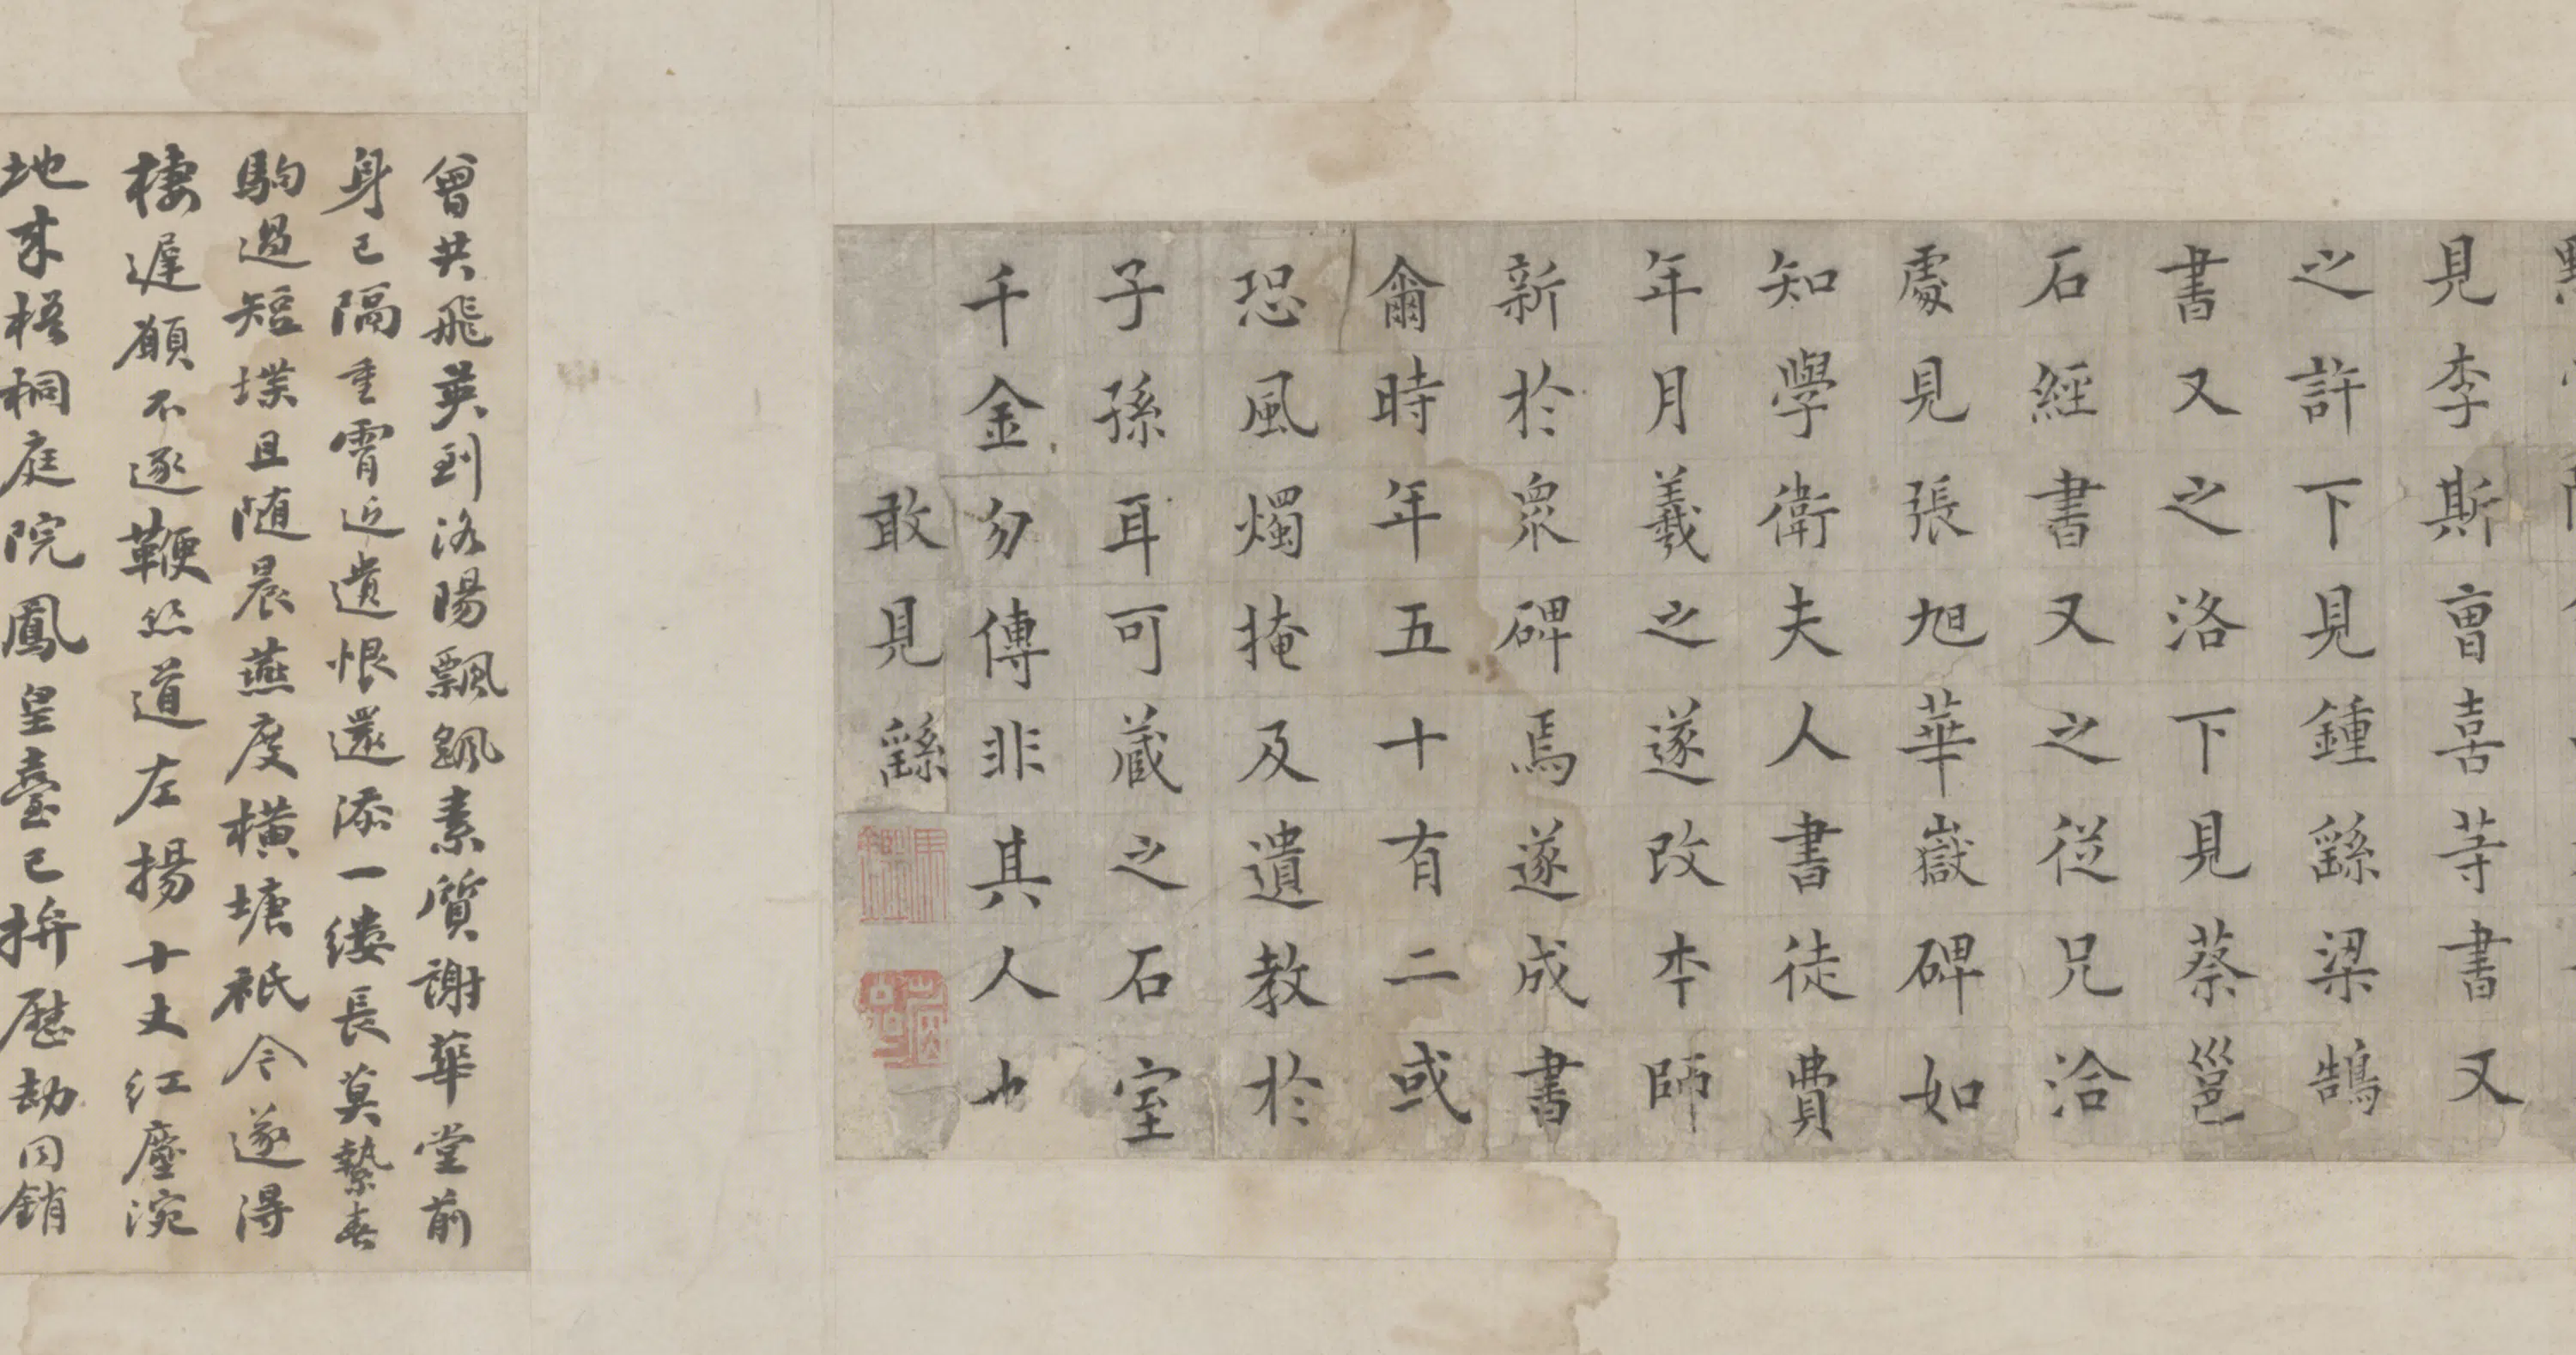 見李斯曺喜等書又
之許下見鍾繇梁鵠
書又之洛下見蔡邕
石經書又之從兄洽
處見張旭華嶽碑如
知學衛夫人書徒費
年月羲之遂改本師
新於衆碑焉遂成書
爾時年五十有二或
恐風燭掩及遺教於
子孫耳可蔵之石室
千金勿傳非其人也
敢見繇
曾共飛英到洛陽飄飄素質謝華堂前
身已隔重霄近遺恨還添一縷長莫縶春
駒過短堞且随晨燕度橫塘祇今遂得
棲遲願不逐鞭絲道左揚十丈紅塵涴
地来梧桐庭院鳳皇臺已拚歷劫同銷